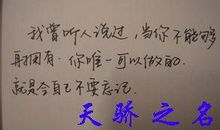 我曾听人说过，当你不能够
再拥有，你唯一可以做的，
就是令自己不要忘记。
天骄之名